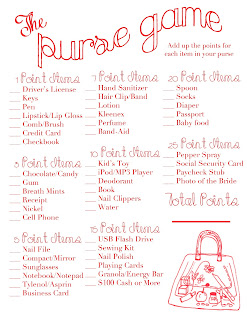 The
purse game
Add up the points for
each item in your purse
1 Point Items
Driver's License
Keys
Pen
Lipstick/Lip Gloss
Comb/Brush
Credit Card
Checkbook
Point Items
Chocolate/Candy
Gum
Breath Mints
Receipt
Nickel
Cell Phone
Point Items
Nail File
Compact/Mirror
Sunglasses
Notebook/Notepad
Tylenol/Asprin
Business Card
Point Items
Hand Sanitizer
Hair Clip/Band
Lotion
Kleenex
Perfume
Band-Aid
10 Point Items
Kid's Toy
iPod/MP3 Player
Deodorant
Book
Nail Clippers
Water
15 Point Items
USB Flash Drive
Sewing Kit
Nail Polish
Playing Cards
Granola/Energy Bar
$100 Cash or More
20 Point Items
Spoon
Socks
Diaper
Passport
Baby food
25 Point Items
Pepper Spray
Social Security Card
Paycheck Stub
Photo of the Bride
Total Points